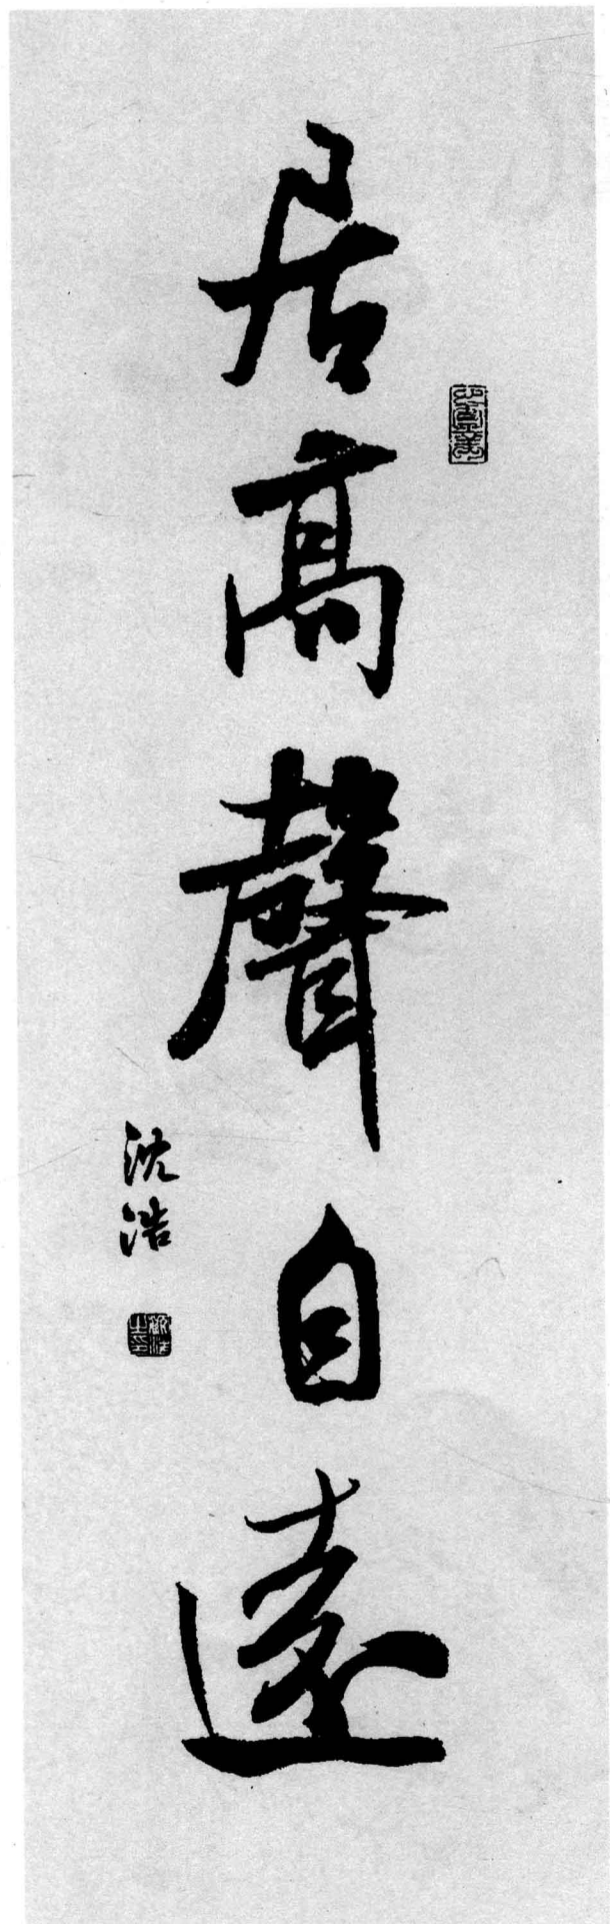 居高聲自遠
沈浩